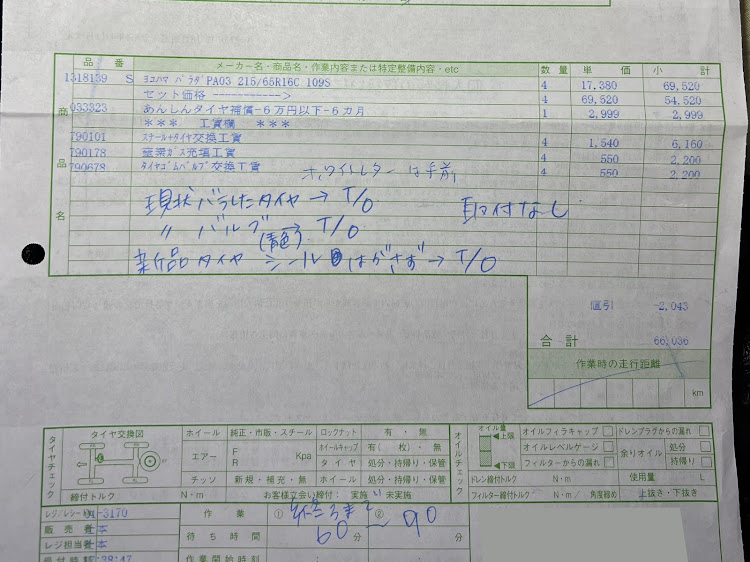 品 番 メーカー名・商品名・作業内容または特定整備内容・etc 数量 単 価 小 計
1318139 S ヨコハマ パラダ PA03 215/65R16C 109S 4 17,380 69,520
セット価格 ------------> 4 69,520 54,520
033323 あんしんタイヤ補償-6万円以下-6カ月 1 2,999 2,999
*** 工賃欄 ***
790101 スチール+タイヤ交換工賃 4 1,540 6,160
790178 窒素ガス充填工賃 4 550 2,200
790678 タイヤゴムバルブ交換工賃 4 550 2,200
商品名
ホワイトレターは手前
現状バラしたタイヤ→T/O 取付なし
〃 バルブ→T/O
(青色)
新品タイヤ シールはがさず→T/O
値引 -2,043
合 計 66,036
作業時の走行距離
km
タイヤチェック
タイヤ交換図
締付トルク N・m
ホイール 純正・市販・スチール ロックナット 有・無
エアー F R Kpa オイルキャップ 有( 枚)・無
タイヤ 処分・持帰り・保管
チッソ 新規・補充・無 ホイール 処分・持帰り・保管
お客様立会い締付: 実施 未実施
オイルチェック
オイル量 上限 下限
オイルフィラキャップ ドレンプラグからの漏れ
オイルレベルゲージ 余りオイル 処分
フィルターからの漏れ 持帰り
ドレン締付トルク N・m 使用量 L
フィルター締付トルク N・m / 角度締め 上抜き・下抜き
レジ/レシート -3170
販売者 本
レジ担当者 本
受付時間 :38:47
作業 ① ②
待ち時間 60分～90分
作業開始時刻